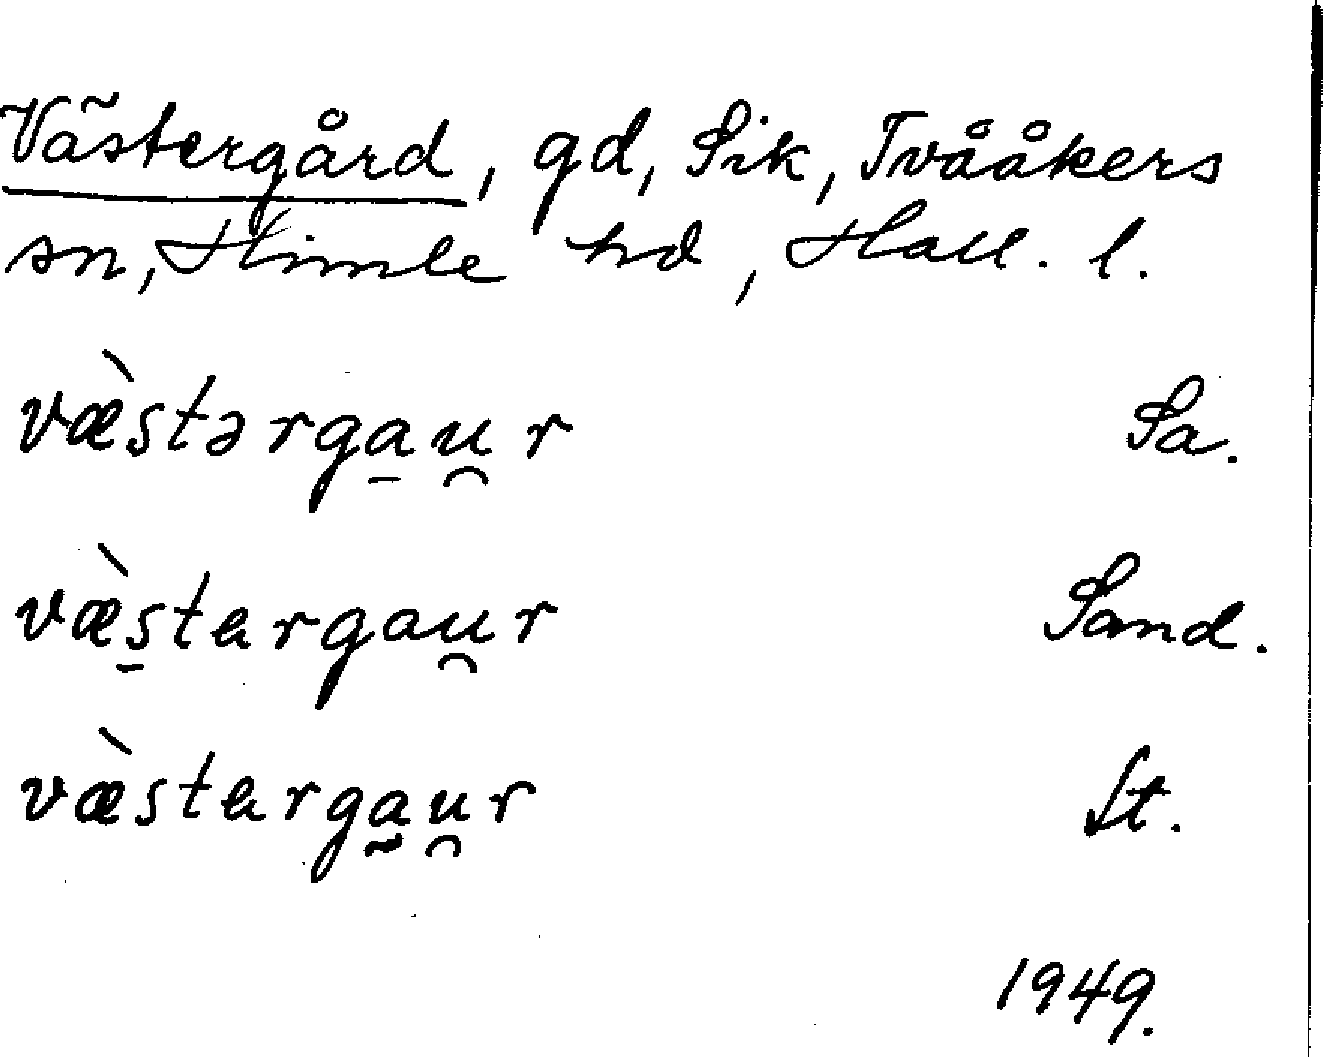 Västergård, gd, Sik, Tvååkers
sn, Himle hd, Hall. l.
væ̀stərga̱u̯r Sa.
væ̀s̱tɐrgau̯r Sand.
væ̀stɐrga̰u̯r St.
1949.